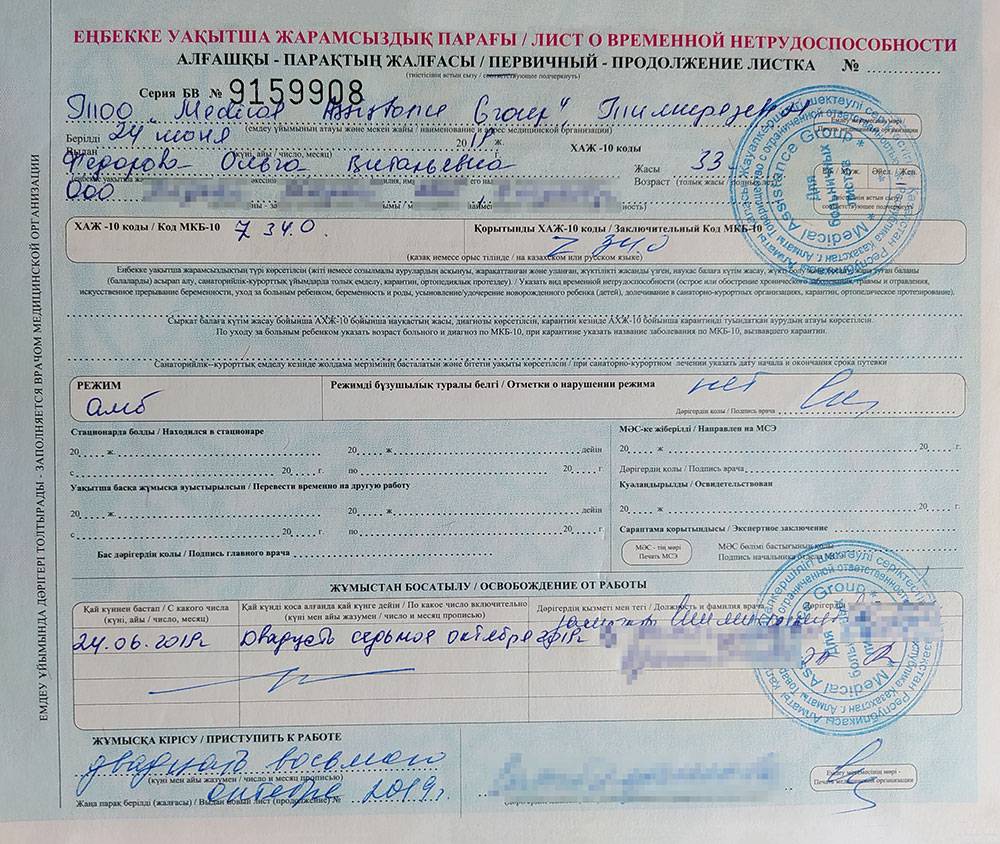 ЕҢБЕККЕ УАҚЫТША ЖАРАМСЫЗДЫҚ ПАРАҒЫ / ЛИСТ О ВРЕМЕННОЙ НЕТРУДОСПОСОБНОСТИ
АЛҒАШҚЫ - ПАРАҚТЫҢ ЖАЛҒАСЫ / ПЕРВИЧНЫЙ - ПРОДОЛЖЕНИЕ ЛИСТКА №
(тиістісінің астын сызу / соответствующее подчеркнуть)
Серия БВ № 9159908
ТОО "Medical Assistance Group", Тимирязева
(емдеу ұйымының атауы және мекен жайы / наименование и адрес медицинской организации)
Берілді 24 июня 2019 ж.
Выдан (күні, айы / число, месяц) ХАЖ -10 коды
Федорова Ольга Витальевна Жасы 33
Возраст (толық жасы /
ООО
ХАЖ -10 коды / Код МКБ-10 Z 34.0 Қорытынды ХАЖ-10 коды / Заключительный Код МКБ-10 Z 34.0
(қазақ немесе орыс тілінде / на казахском или русском языке)
Еңбекке уақытша жарамсыздықтың түрі көрсетілсін (жіті немесе созылмалы аурулардың асқынуы, жарақаттанған және уланған, жүктілікті жасанды үзген, науқас балаға күтім жасау,
(балаларды) асырап алу, санаторийлік-курорттық ұйымдарда толық емделу, карантин, ортопедиялық протездеу). / Указать вид временной нетрудоспособности (острое или обострение хронического заболевания, травмы и отравления,
искусственное прерывание беременности, уход за больным ребенком, беременность и роды, усыновление/удочерение новорожденного ребенка (детей), долечивание в санаторно-курортных организациях, карантин, ортопедическое протезирование).
Сырқат балаға күтім жасау бойынша АХЖ-10 бойынша науқастың жасы, диагнозы көрсетілсін, карантин кезінде АХЖ-10 бойынша карантинді туындатқан аурудың атауы көрсетілсін.
По уходу за больным ребенком указать возраст больного и диагноз по МКБ-10, при карантине указать название заболевания по МКБ-10, вызвавшего карантин.
Санаторийлік-курорттық емделу кезінде жолдама мерзімінің басталатын және бітетін уақыты көрсетілсін / при санаторно-курортном лечении указать дату начала и окончания срока путевки
РЕЖИМ Режимді бұзушылық туралы белгі / Отметки о нарушении режима нет
амб Дәрігердің қолы / Подпись врача
Стационарда болды / Находился в стационаре МӘС-ке жіберілді / Направлен на МСЭ
20 ж. 20 ж. дейін 20 ж. 20 г.
с 20 г. по 20 г. Дәрігердің қолы / Подпись врача
Уақытша басқа жұмысқа ауыстырылсын / Перевести временно на другую работу Куәландырылды / Освидетельствован
20 ж. 20 ж. дейін 20 ж 20 г.
с 20 г. по 20 г. Сараптама қорытындысы / Экспертное заключение
Бас дәрігердің қолы / Подпись главного врача МӘС - тің мөрі Печать МСЭ МӘС бөлімі бастығының қолы
Подпись начальника отдела МСЭ
ЖҰМЫСТАН БОСАТЫЛУ / ОСВОБОЖДЕНИЕ ОТ РАБОТЫ
Қай күннен бастап / С какого числа (күні, айы / число, месяц) Қай күнді қоса алғанда қай күнге дейін / По какое число включительно (күні мен айы жазумен / число и месяц прописью) Дәрігердің қызметі мен тегі / Должность и фамилия врача Дәрігердің
24.06.2019г Двадцать седьмое октября 2019г.
ЖҰМЫСҚА КІРІСУ / ПРИСТУПИТЬ К РАБОТЕ
двадцать восьмого
(күні мен айы жазумен / число и месяц прописью)
октября 2019г.
Жаңа парақ берілді (жалғасы) / Выдан новый лист (продолжение) №
Емдеу мекемесінің мөрі - Печать медицинской организации
ЕМДЕУ ҰЙЫМЫНДА ДӘРІГЕРІ ТОЛТЫРАДЫ - ЗАПОЛНЯЕТСЯ ВРАЧОМ МЕДИЦИНСКОЙ ОРГАНИЗАЦИИ
Medical Assistance Group
Для больничных листов